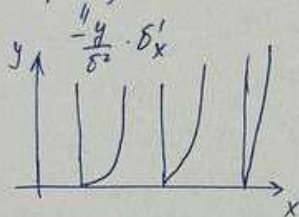 "
- y/δ² · δ'ₓ
y
x